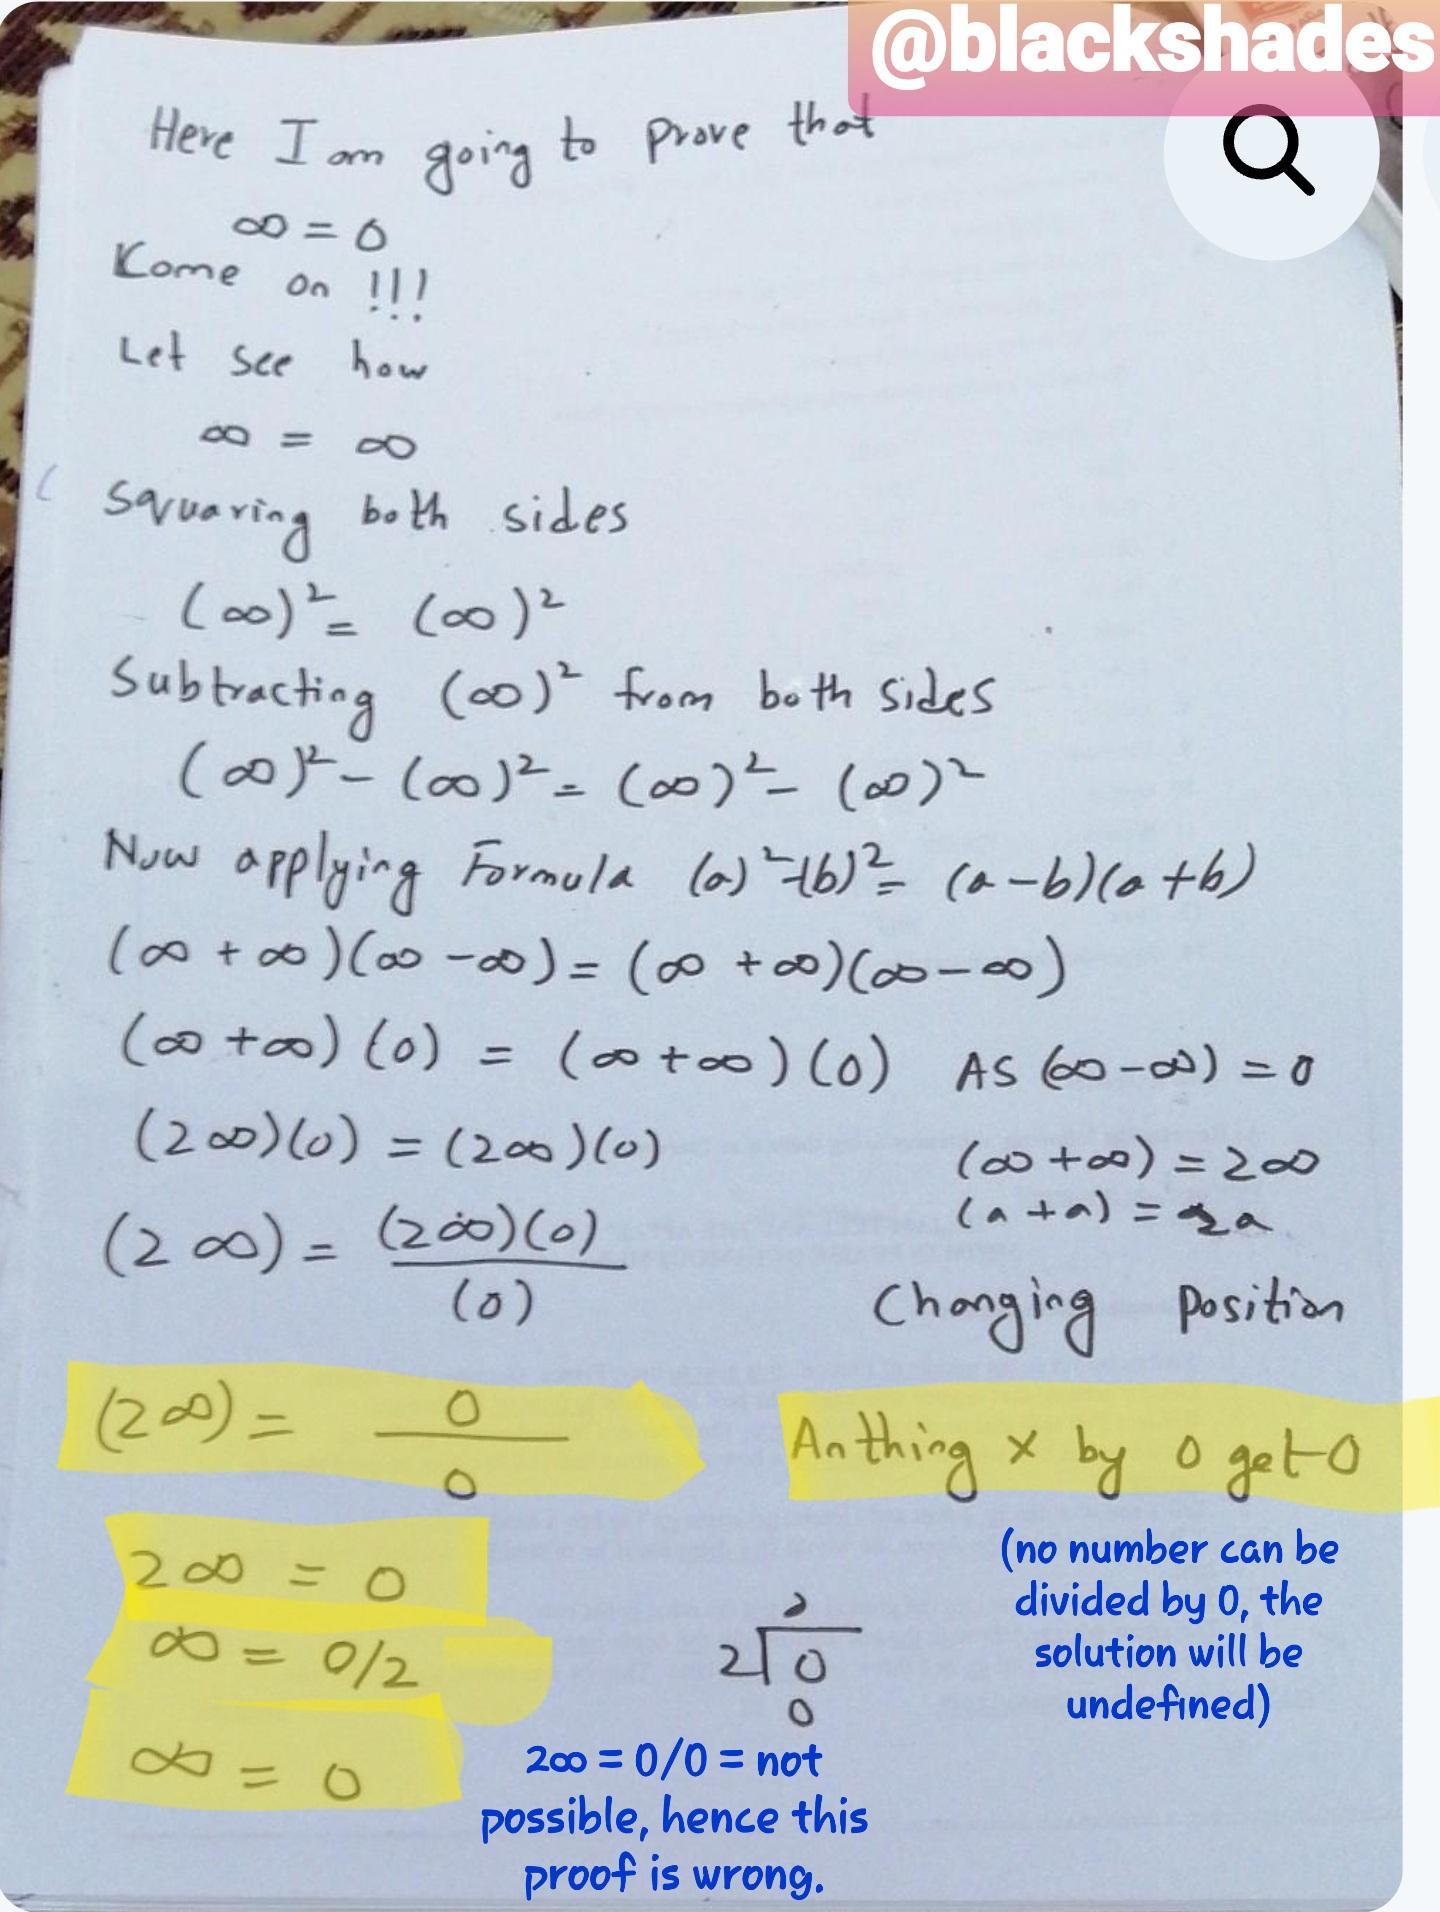 @blackshades
Here I am going to prove that
∞ = 0
Kome on !!!
Let see how
∞ = ∞
Squaring both sides
(∞)² = (∞)²
Subtracting (∞)² from both sides
(∞)² - (∞)² = (∞)² - (∞)²
Now applying Formula (a)² - (b)² = (a - b)(a + b)
(∞ + ∞)(∞ - ∞) = (∞ + ∞)(∞ - ∞)
(∞ + ∞) (0) = (∞ + ∞) (0) As (∞ - ∞) = 0
(2∞)(0) = (2∞)(0) (∞ + ∞) = 2∞
(a + a) = 2a
(2∞) = (2∞)(0) / (0)
Changing position
(2∞) = 0 / 0 Anthing × by 0 get 0
(no number can be
divided by 0, the
solution will be
undefined)
2∞ = 0
∞ = 0/2
2 0
0
∞ = 0
2∞ = 0/0 = not
possible, hence this
proof is wrong.